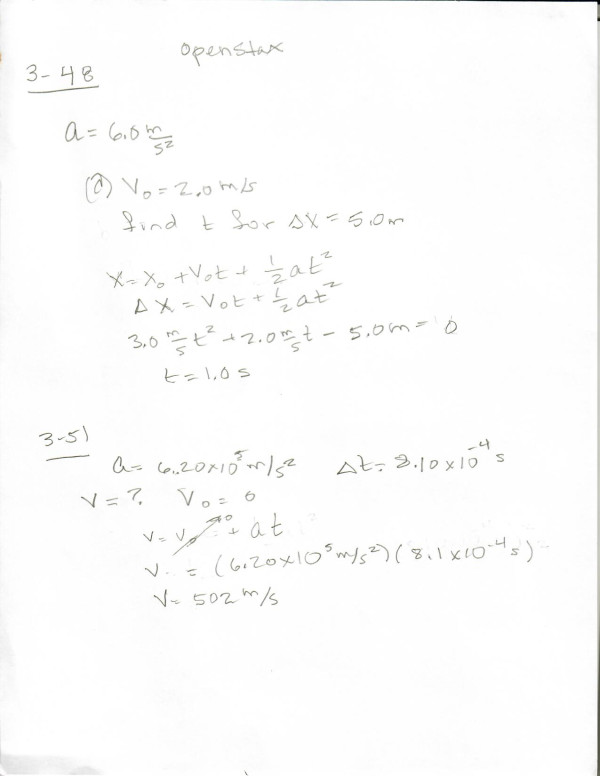 openstax
3-48
a = 6.0 m/s²
(a) V₀ = 2.0 m/s
find t for ΔX = 5.0m
X = X₀ + V₀t + 1/2 at²
ΔX = V₀t + 1/2 at²
3.0 m/s t² + 2.0 m/s t - 5.0m = 0
t = 1.0 s
3-51
a = 6.20×10⁵ m/s² Δt = 8.10×10⁻⁴ s
V = ? V₀ = 0
V = V₀ + at
0
V = (6.20×10⁵ m/s²)(8.1×10⁻⁴ s)
V = 502 m/s